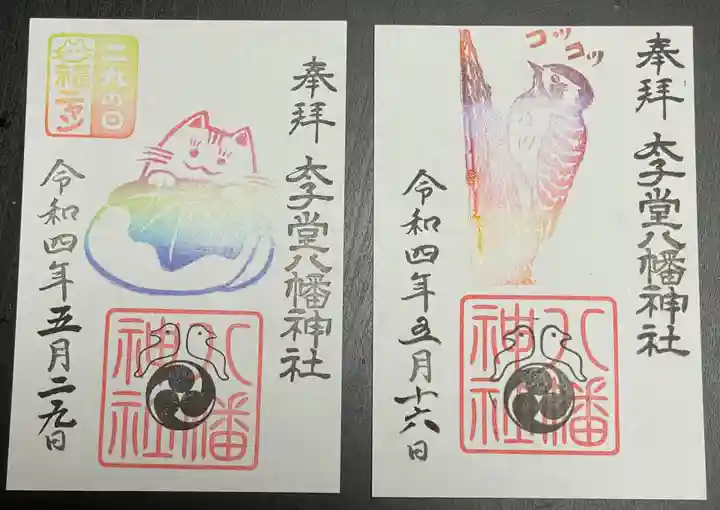 奉拝
太子堂八幡神社
二九の日
福ニャン
八幡
神社
令和四年五月二九日
奉拝
太子堂八幡神社
コツコツ
八幡
神社
令和四年五月十六日